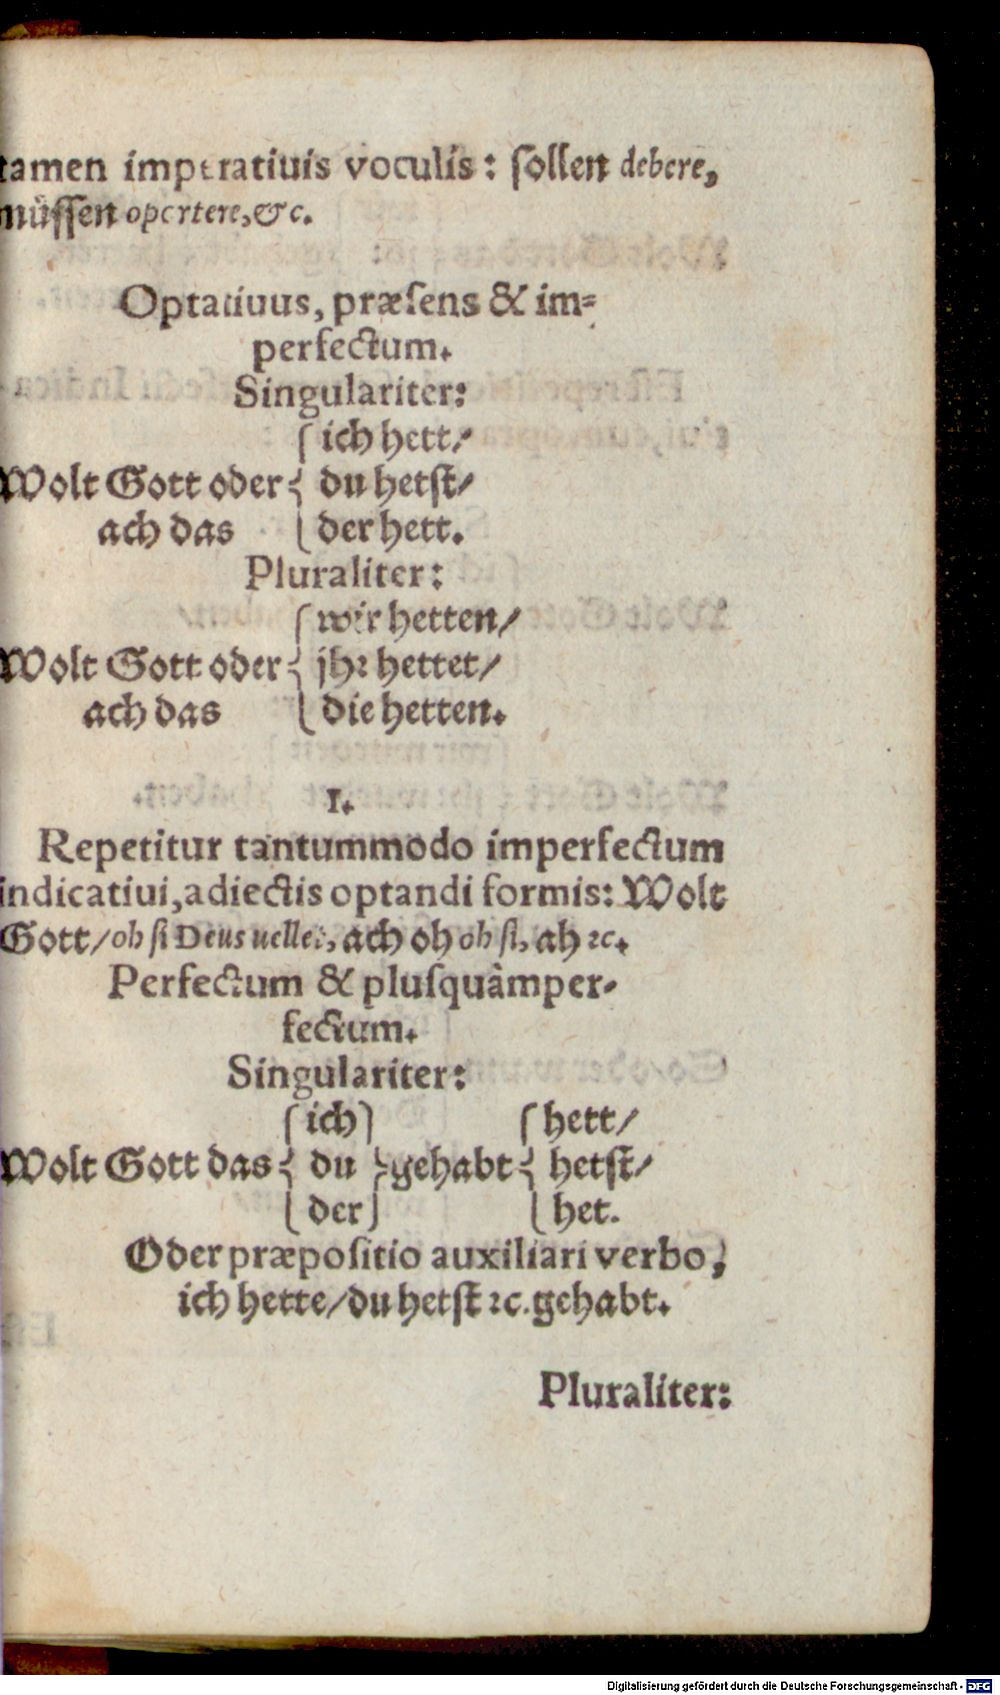 tamen imperatiuis voculis: ſollen debere,
müſſen oportere, &c.
Optatiuus, præſens & im=
perfectum.
Singulariter:
ich hett/
Wolt Gott oder du hetſt/
ach das der hett.
Pluraliter:
wir hetten/
Wolt Gott oder jhr hettet/
ach das die hetten.
1.
Repetitur tantummodo imperfectum
indicatiui, adiectis optandi formis: Wolt
Gott/ oh ſi Deus uellet, ach oh oh ſi, ah ꝛc.
Perfectum & pluſquàmper-
fectum.
Singulariter:
ich hett/
Wolt Gott das du gehabt hetſt/
der het.
Oder præpoſitio auxiliari verbo,
ich hette/ du hetſt ꝛc. gehabt.
Pluraliter:
Digitalisierung gefördert durch die Deutsche Forschungsgemeinschaft - DFG